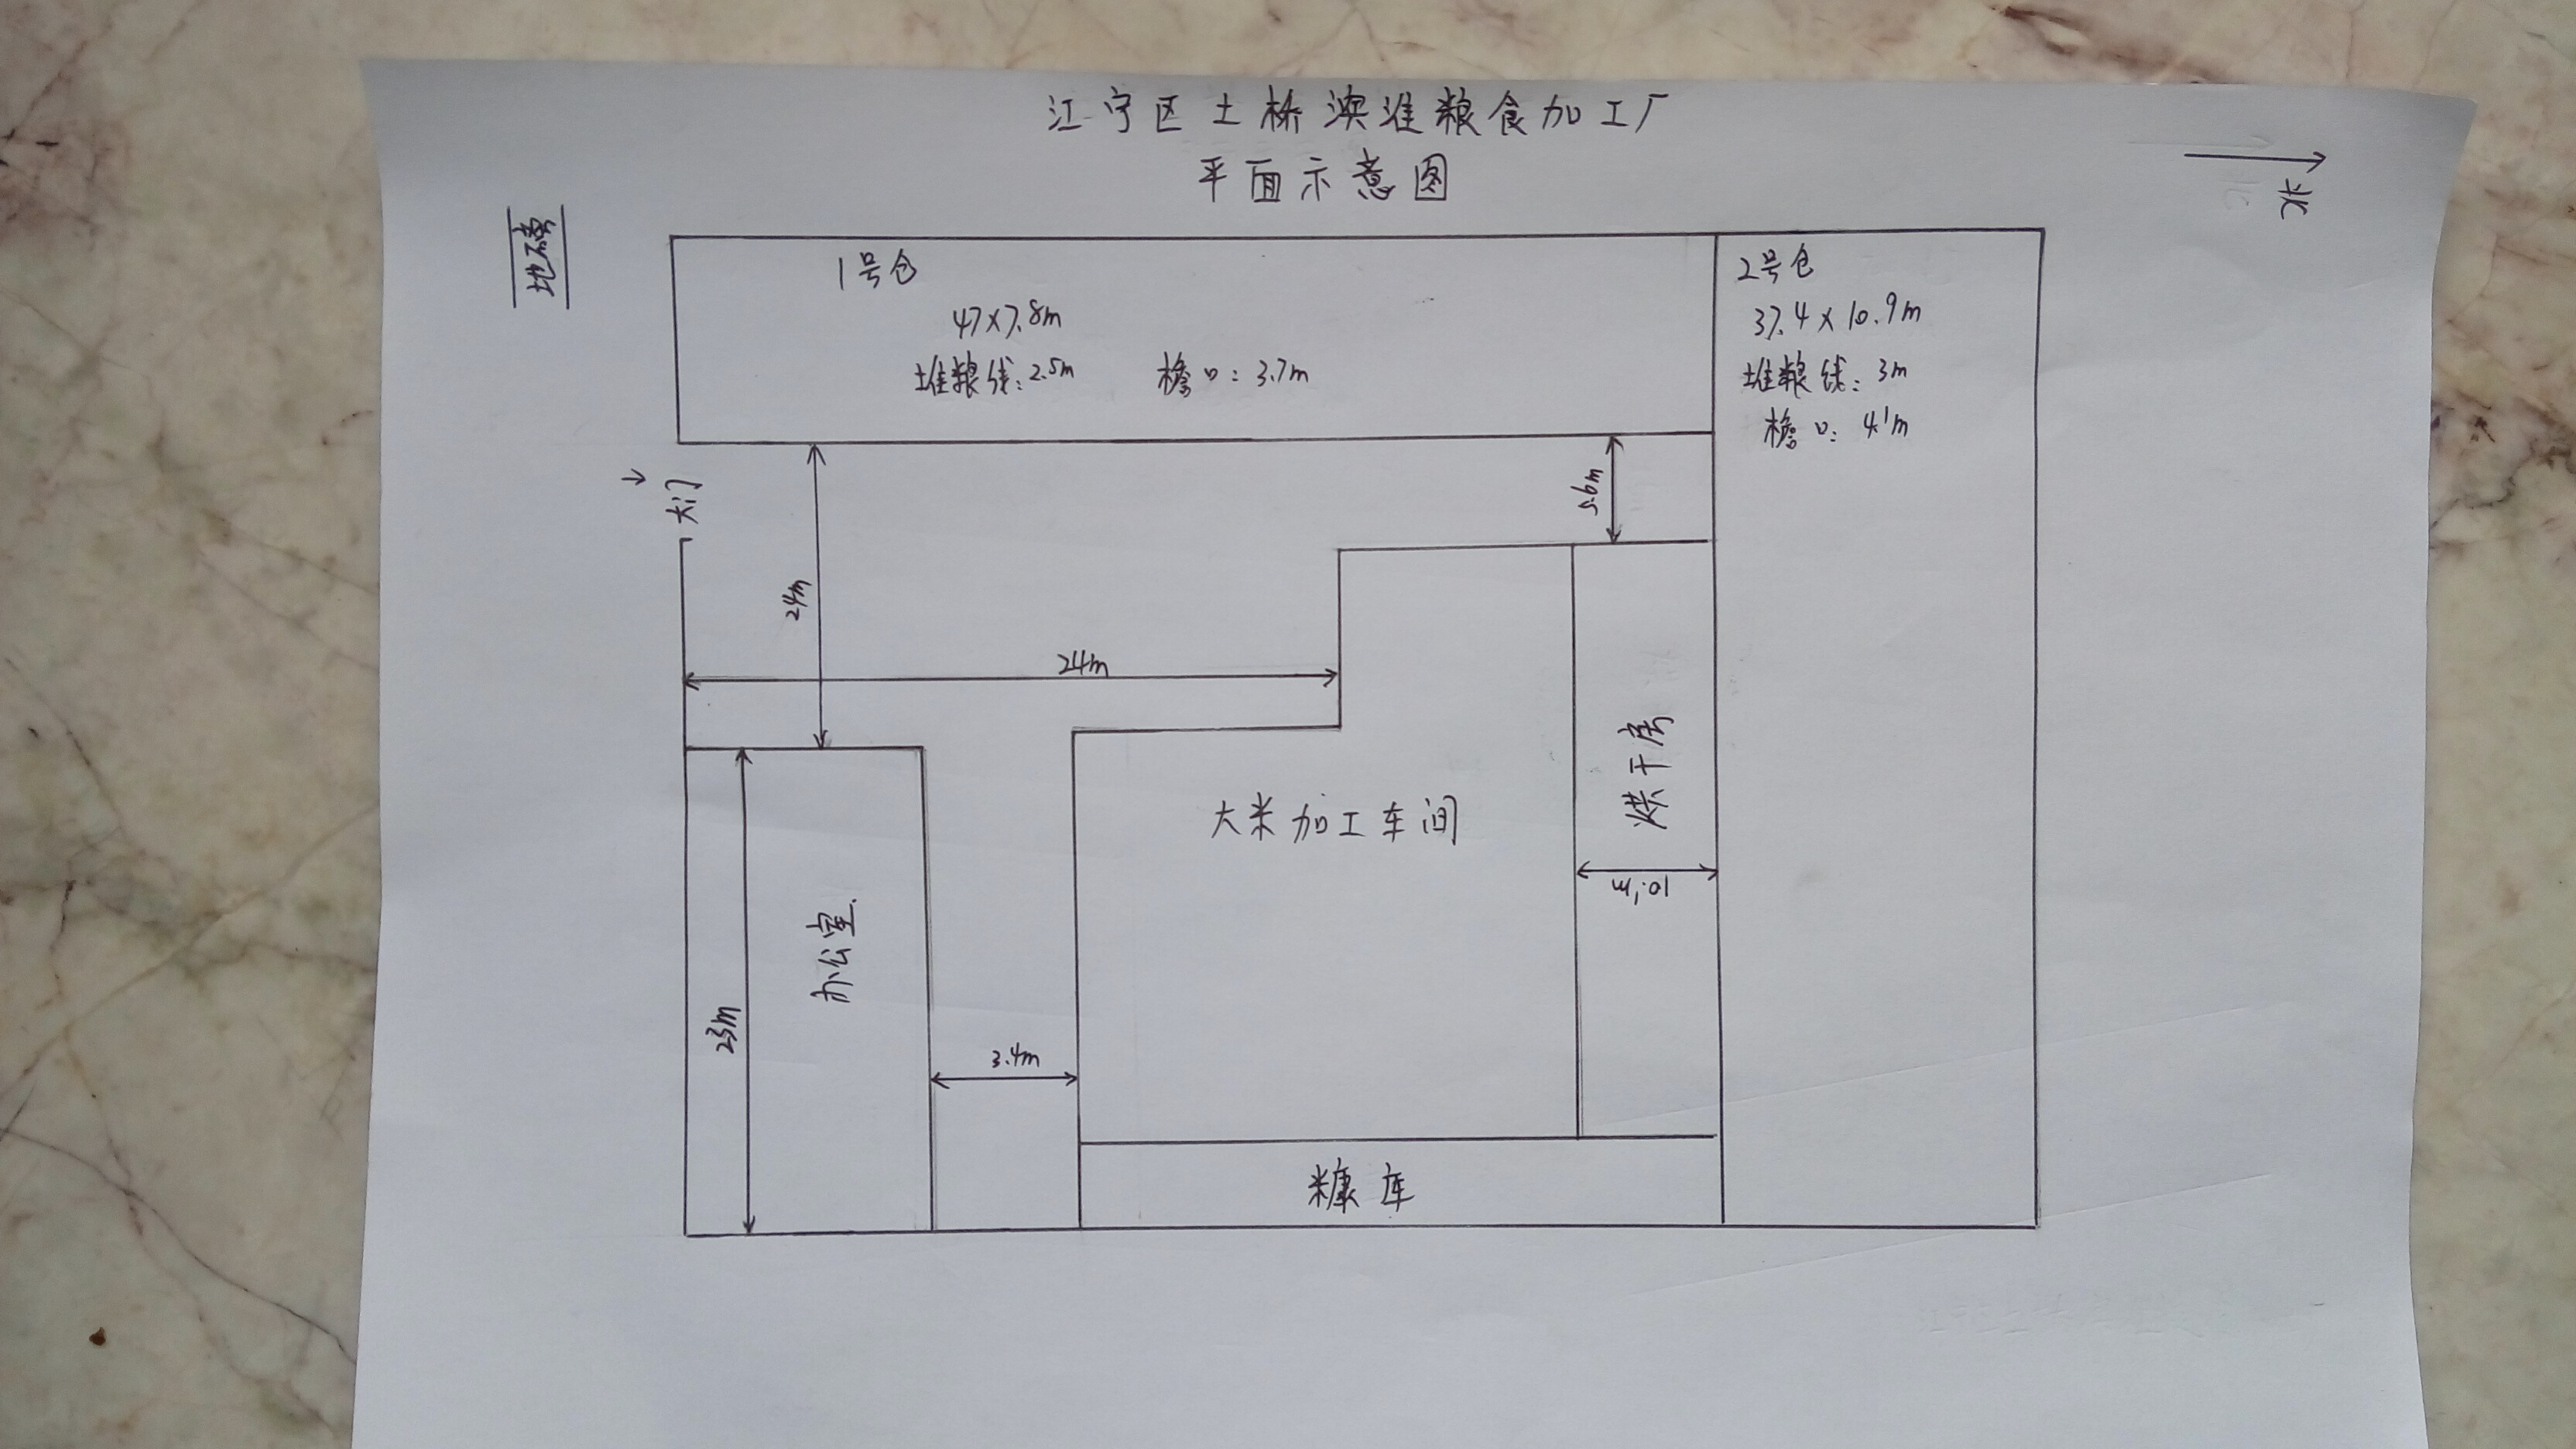 江宁区土桥溴淮粮食加工厂
平面示意图
北
地磅
1号仓
47×7.8m
堆粮线:2.5m 檐口:3.7m
2号仓
37.4×10.9m
堆粮线:3m
檐口:4.1m
大门
5.6m
24m
24m
大米加工车间
烘干房
10.1m
办公室
23m
3.4m
糠库